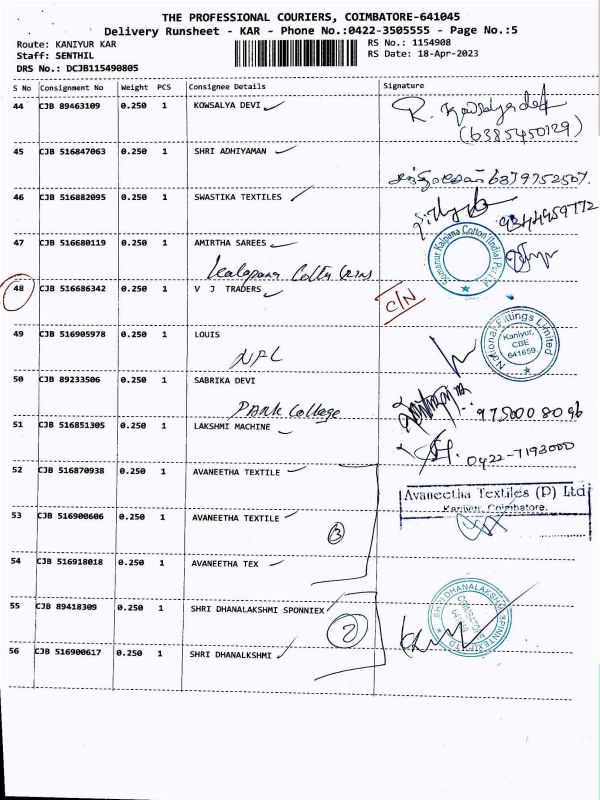 THE PROFESSIONAL COURIERS, COIMBATORE-641045
Delivery Runsheet - KAR - Phone No.:0422-3505555 - Page No.:5
Route: KANIYUR KAR
Staff: SENTHIL
DRS No.: DCJB115490805
RS No.: 1154908
RS Date: 18-Apr-2023
S No Consignment No Weight PCS Consignee Details Signature
44 CJB 89463109 0.250 1 KOWSALYA DEVI
R. Kowsalyadevi
(6385450129)
45 CJB 516847063 0.250 1 SHRI ADHIYAMAN
6379752507.
46 CJB 516882095 0.250 1 SWASTIKA TEXTILES
9344959772
47 CJB 516680119 0.250 1 AMIRTHA SAREES
Somanur Kalpana Cotton (India) Pvt Ltd
Kalapana Cotton
48 CJB 516686342 0.250 1 V J TRADERS
C/N
49 CJB 516905978 0.250 1 LOUIS
NFL
National Fittings Limited
Kaniyur,
CBE
641659
50 CJB 89233506 0.250 1 SABRIKA DEVI
Park College
975000 8096
51 CJB 516851305 0.250 1 LAKSHMI MACHINE
0422-7193000
52 CJB 516870938 0.250 1 AVANEETHA TEXTILE
Avaneetha Textiles (P) Ltd
Kaniyur, Coimbatore.
53 CJB 516900606 0.250 1 AVANEETHA TEXTILE
3
54 CJB 516918018 0.250 1 AVANEETHA TEX
55 CJB 89418309 0.250 1 SHRI DHANALAKSHMI SPONNIEX
2
56 CJB 516900617 0.250 1 SHRI DHANALKSHMI